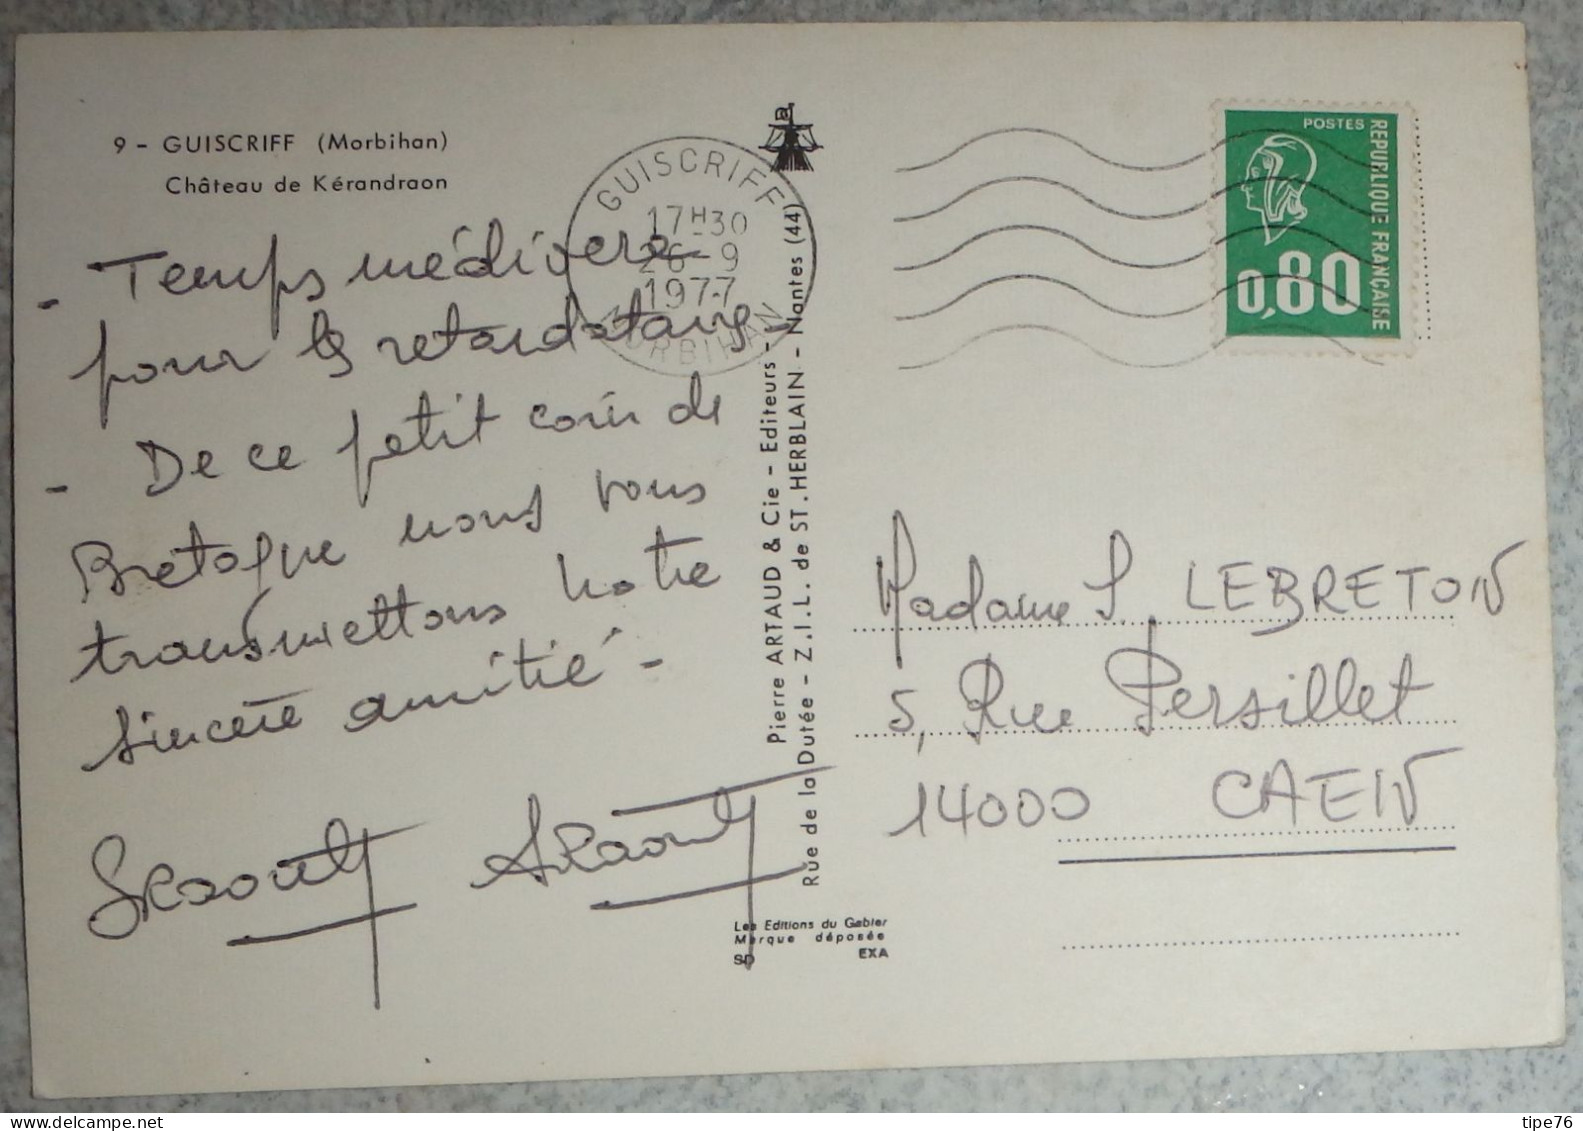 9 - GUISCRIFF (Morbihan)
Château de Kérandraon
- Temps
pour les retardataires -
- De ce petit coin de
Bretagne nous vous
transmettons notre
sincère amitié -
GUISCRIFF
17H30
26-9
1977
MORBIHAN
Pierre ARTAUD & Cie - Editeurs -
Rue de la Dutée - Z.I.L. de ST. HERBLAIN - Nantes (44)
Les Editions du Gabier
Marque déposée
SD EXA
POSTES
REPUBLIQUE FRANÇAISE
0,80
Madame S. LEBRETON
5, Rue Persillet
14000 CAEN
www.delcampe.net
tipe76